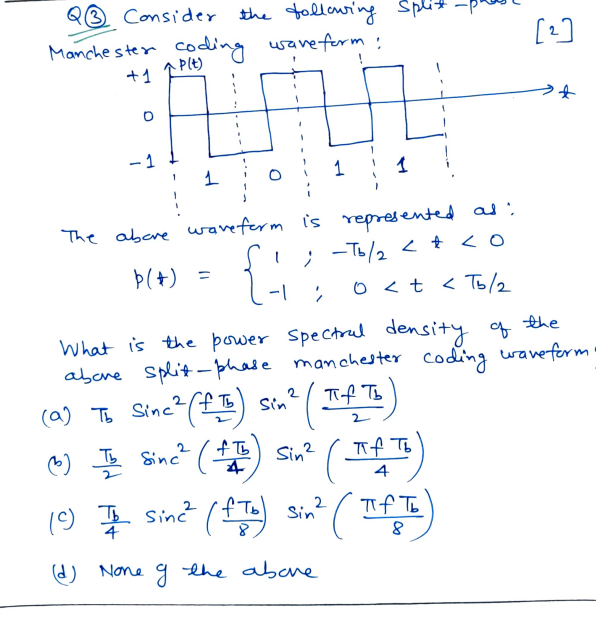 Q③ Consider the following Split-phase
Manchester coding waveform : [2]
p(t)
+1
0
-1
t
1 0 1 1
The above waveform is represented as :
p(t) = { 1 ; -Tb/2 < t < 0
-1 ; 0 < t < Tb/2
What is the power spectral density of the
above split-phase manchester coding waveform
(a) Tb Sinc²(f Tb/2) Sin²(πf Tb/2)
(b) Tb/2 Sinc²(f Tb/4) Sin²(πf Tb/4)
(c) Tb/4 Sinc²(f Tb/8) Sin²(πf Tb/8)
(d) None of the above